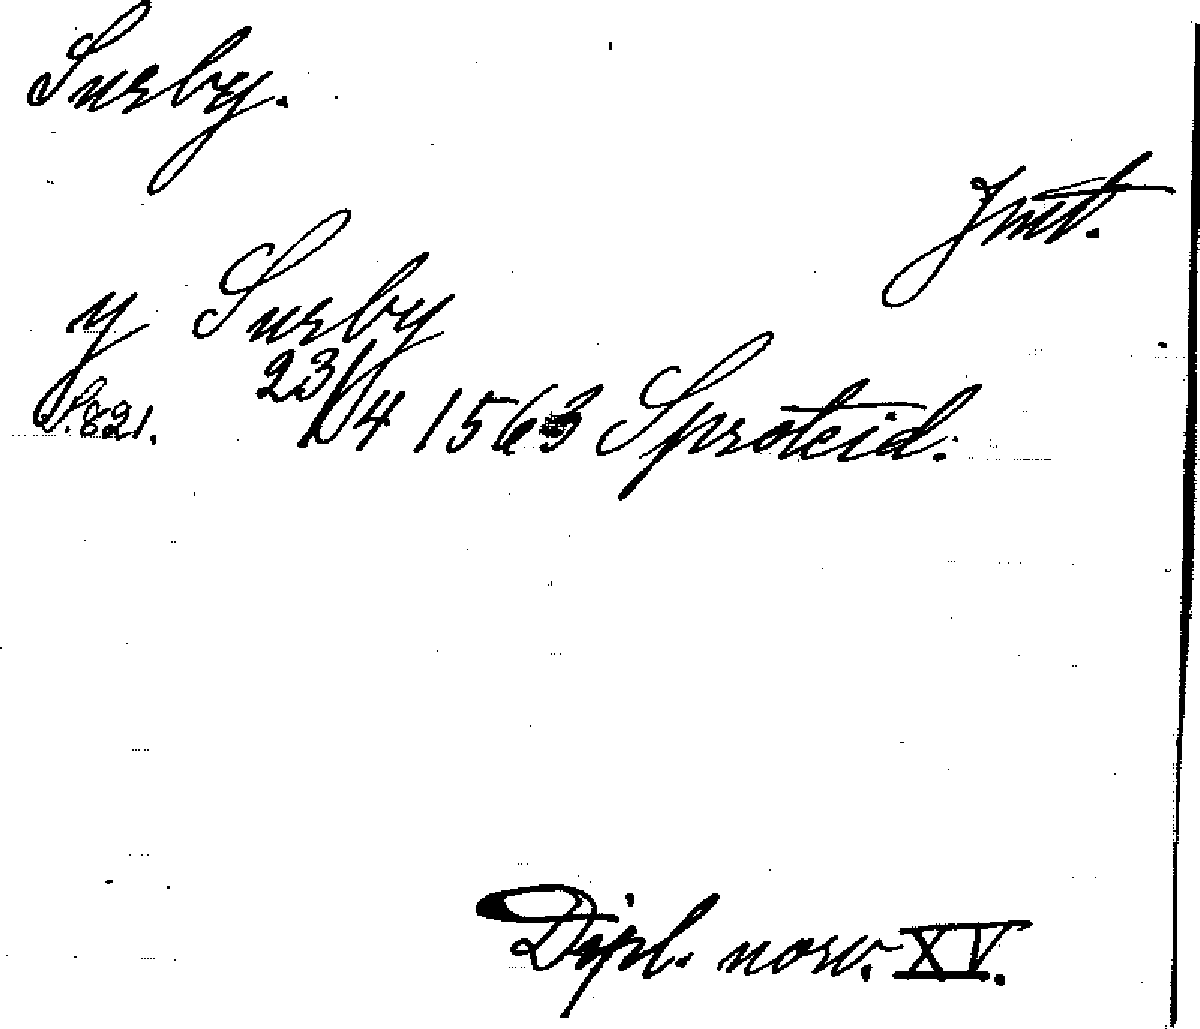 Surby.
Jmt.
y Surby
S. 821. 23/4 1563 Sproteid.
Dipl. norv. XV.